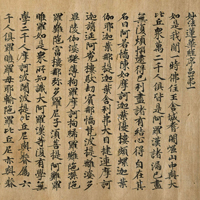 妙法蓮華經序品第一
如是我聞一時佛住王舍城耆闍崛山中與大
比丘眾萬二千人俱皆是阿羅漢諸漏已盡
無復煩惱逮得己利盡諸有結心得自在其
名曰阿若憍陳如摩訶迦葉優樓頻螺迦葉
伽耶迦葉那提迦葉舍利弗大目揵連摩訶
迦旃延阿㝹樓馱劫賓那憍梵波提離婆多
畢陵伽婆蹉薄拘羅摩訶拘絺羅難陀孫陀
羅難陀富樓那彌多羅尼子須菩提阿難羅
睺羅如是眾所知識大阿羅漢等復有學無
學二千人摩訶波闍波提比丘尼與眷屬六
千人俱羅睺羅母耶輸陀羅比丘尼亦與眷